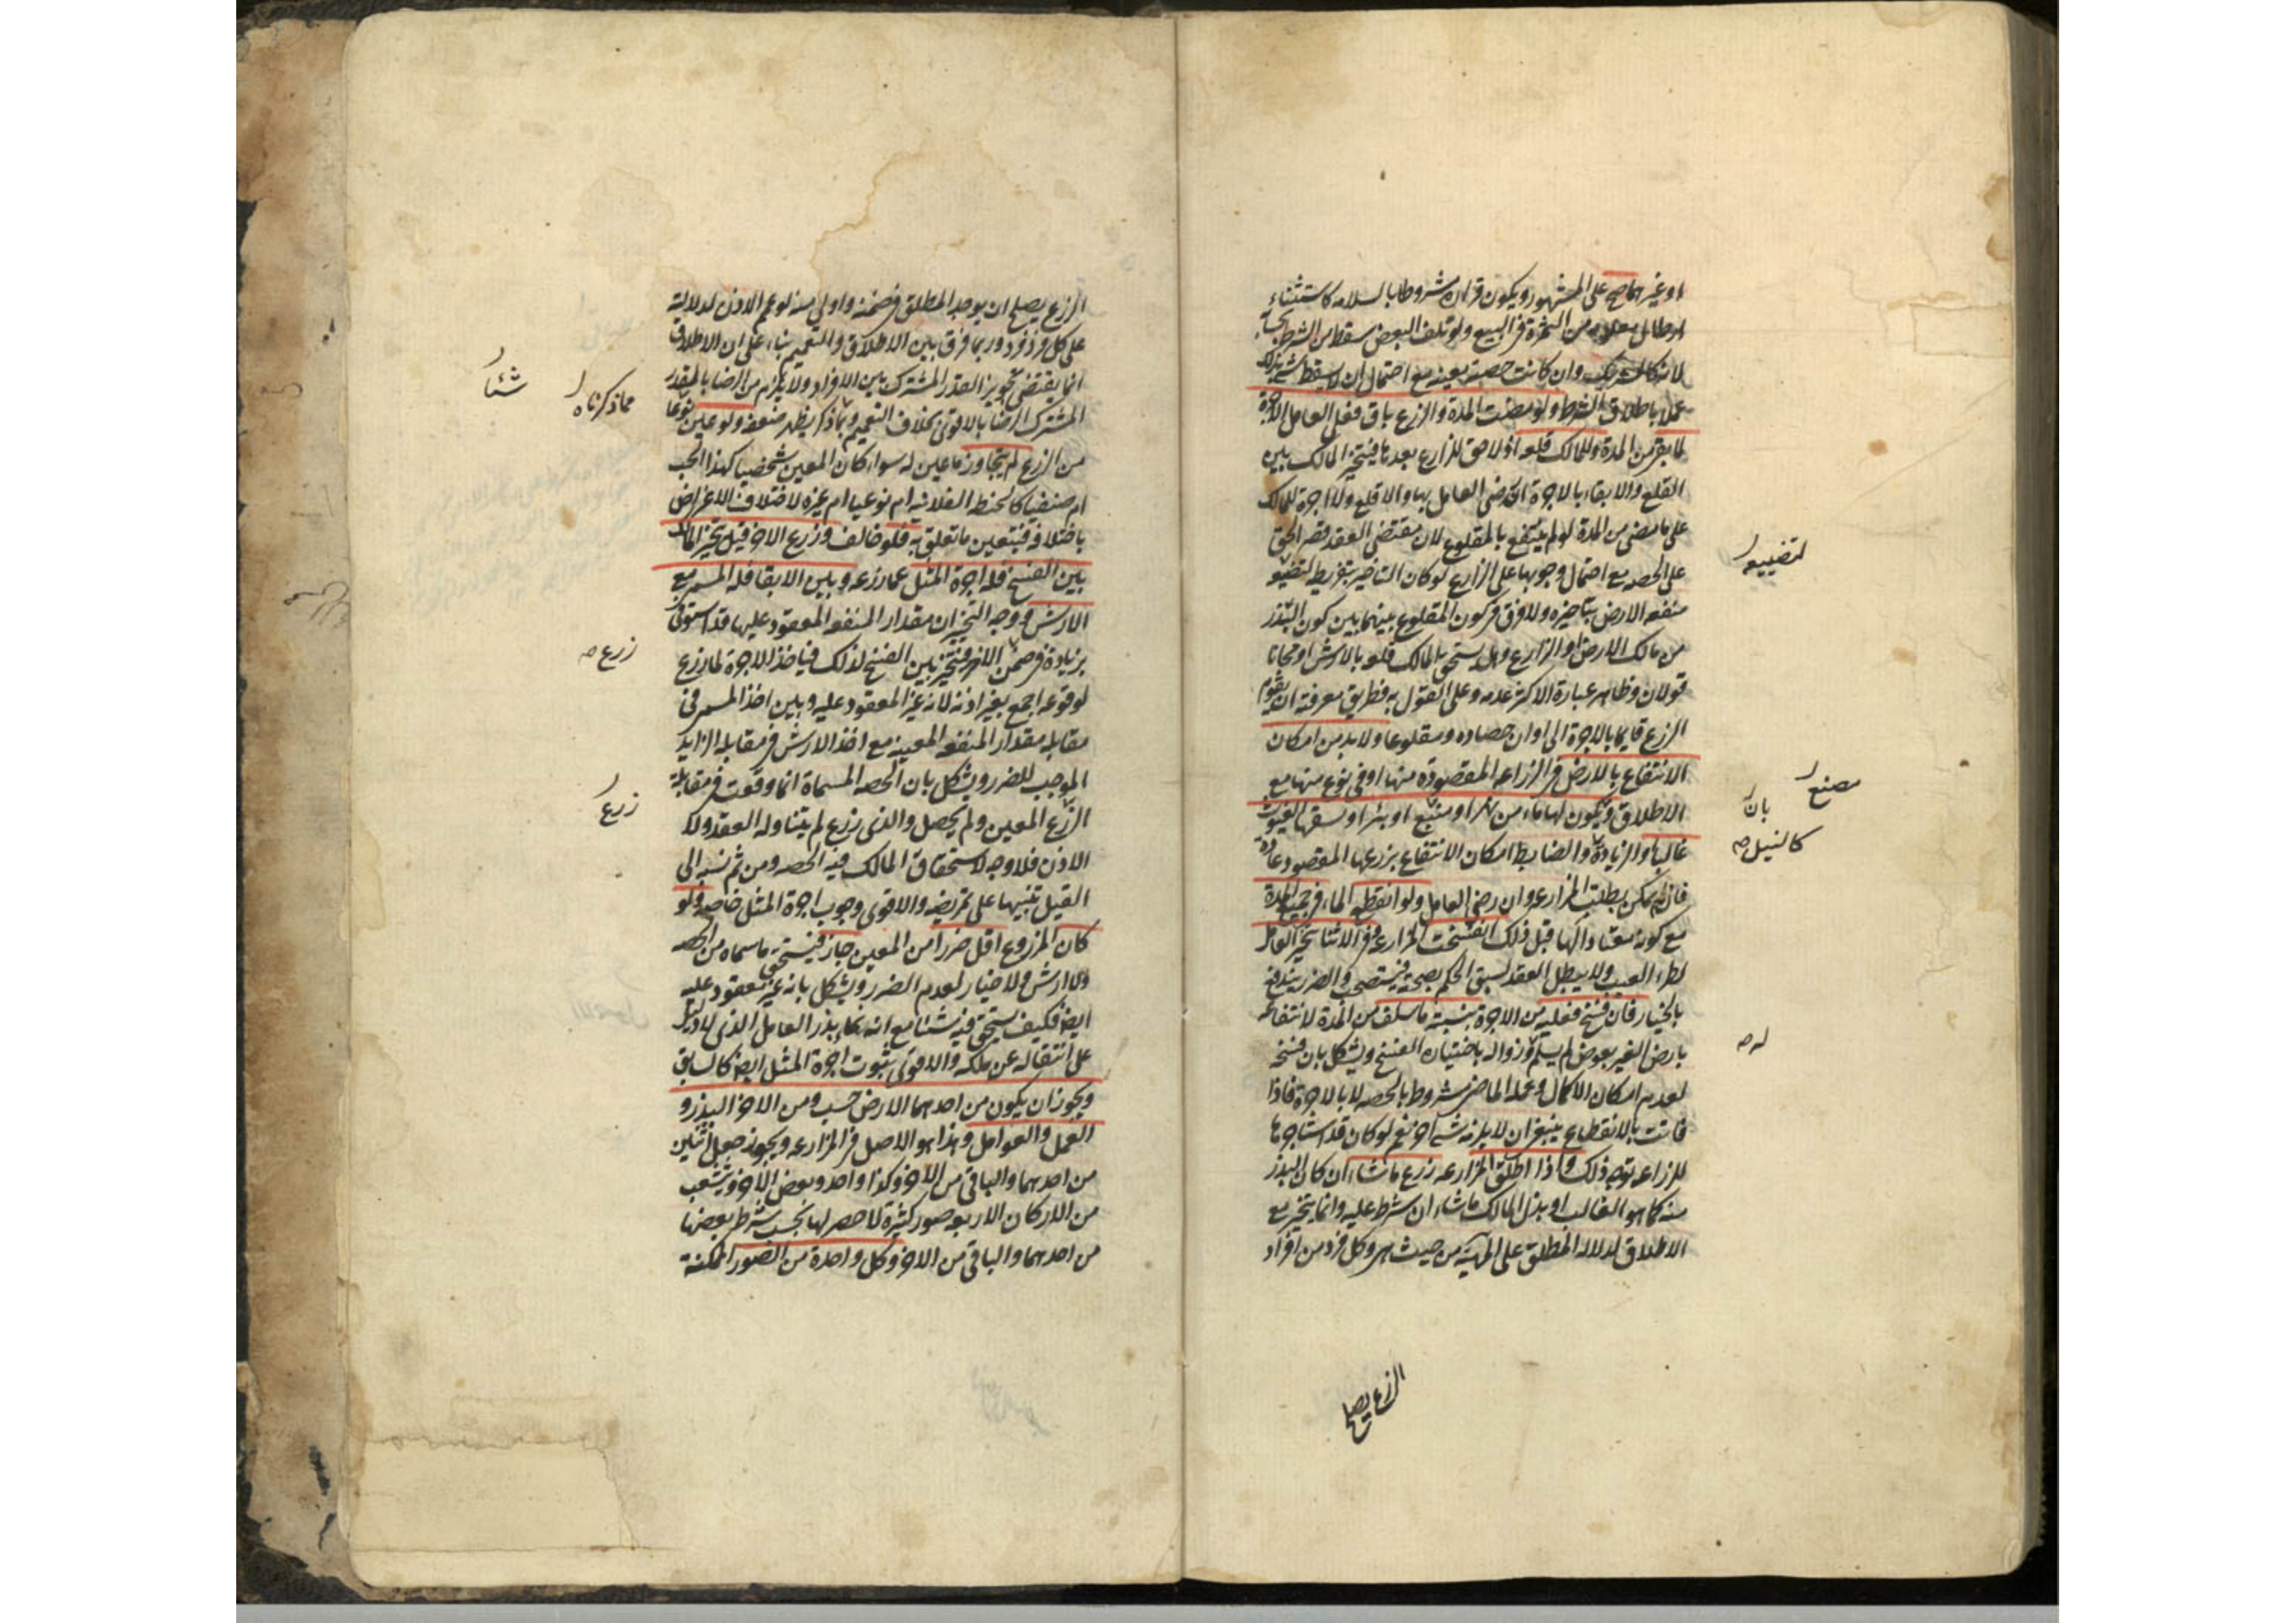 او غيرهما صح على المشهور ويكون قراره مشروطا بالسلامه كاستثناء
ارطال معلومه من الثمرة في البيع ولو تلف البعض سقط من الشرط بحسابه
لانه كالشريك وان كانت حصته معينه مع احتمال ان لا يسقط شئ بذلك
عملا باطلاق الشرط ولو مضت المدة والزرع باق فعلى العامل الاجرة
لما بقي من المدة وللمالك قلعه اذ لا حق للزارع بعدها فيتخير المالك بين
القلع والابقاء بالاجرة ان رضى العامل بها والا قلع ولا اجرة للمالك
على ما مضى من المدة لو لم ينتفع بالمقلوع لان مقتضى العقد قصر الحق
على الحصه مع احتمال وجوبها على الزارع لو كان التاخير بتفريط لتضييعه
لتضييعه
منفعه الارض بتاخيره ولا فرق في كون المقلوع بينهما بين كون البذر
من مالك الارض او الزارع وهل يستحق المالك قلعه بالارش او مجانا
قولان وظاهر عبارة الاكثر عدمه وعلى القول به فطريق معرفته ان يقوم
الزرع قايما بالاجرة الى اوان حصاده ومقلوعا ولا بد من امكان
الانتفاع بالارض في الزراعه المقصوده منها او في نوع منها مع
مصنع
الاطلاق ويكون لها ماء من نهر او مصنع او بئر او لسقيها الغيوث
بان
غالبا والزيادة والضابط امكان الانتفاع بزرعها المقصود عادة
كالنيل صح
فان لم يمكن بطلت المزارعه وان رضى العامل ولو انقطع الماء في جميع المدة
مع كونه معتادا لها قبل ذلك انفسخت المزارعه وفي الاثناء يتخير العامل
لطرء العيب ولا يبطل العقد لسبق الحكم بصحته فيستصحب والضرر يندفع
بالخيار فان فسخ فعليه من الاجرة بنسبة ما سلف من المدة لانتفاعه
بارض الغير بعوض لم يسلم وزواله باختياره الفسخ ويشكل بان فسخه
له صح
لعدم امكان الاكمال وعمله الماضي مشروط بالحصه لا بالاجرة فاذا
فاتت بالانقطاع ينبغي ان لا يلزمه شئ اخر نعم لو كان قد استاجرها
للزراعه توجه ذلك واذا اطلق المزارعه زرع ما شاء ان كان البذر
منه كما هو الغالب او بذل المالك ما شاء ان شرط عليه وانما يتخير مع
الاطلاق لدلاله المطلق على الماهيه من حيث هي وكل فرد من افراد
الزرع يصلح
الزرع يصلح ان يوجد المطلق في ضمنه واولى منه لو عمم الاذن لدلالته
على كل فرد فرد وربما فرق بين الاطلاق والتعميم بناء على ان الاطلاق
انما يقتضى تجويز القدر المشترك بين الافراد ولا يلزم من الرضا بالقدر
المشترك الرضا بالاقوى بخلاف التعميم وبما ذكر يظهر ضعفه ولو عين نوعا
مما ذكرناه
شئا
من الزرع لم يتجاوز ما عين له سواء كان المعين شخصيا كهذا الحب
ام صنفيا كالحنطه الفلانيه ام نوعيا ام غيره لاختلاف الاغراض
باختلافه فيتعين ما تعلق به فلو خالف وزرع الاضر قيل يتخير المالك
بين الفسخ فله اجرة المثل عما زرعه وبين الابقا فله المسمى مع
الارش ووجه التخيير ان مقدار المنفعه المعقود عليها قد استوفى
بزيادة في ضمن الاضر فيتخير بين الفسخ لذلك فياخذ الاجرة لما زرع
زرع صح
لوقوعه اجمع بغير اذنه لانه غير المعقود عليه وبين اخذ المسمى في
مقابله مقدار المنفعه المعينه مع اخذ الارش في مقابله الزايد
الموجب للضرر ويشكل بان الحصه المسماة انما وقعت في مقابلة
الزرع المعين ولم يحصل والذى زرع لم يتناوله العقد ولا
زرع
الاذن فلا وجه لاستحقاق المالك فيه الحصه ومن ثم نسبه الى
القيل تنبيها على تمريضه والاقوى وجوب اجرة المثل خاصه ولو
كان المزروع اقل ضررا من المعين جاز فيستحق ما سماه من الحصه
ولا ارش ولا خيار لعدم الضرر ويشكل بانه غير معقود عليه
ايضا فكيف يستحق فيه شئا مع انه نماء بذر العامل الذى لا دليل
على انتقاله عن ملكه والاقوى ثبوت اجرة المثل ايضا كالسابق
ويجوز ان يكون من احدهما الارض حسب ومن الاخر البذر و
العمل والعوامل وهذا هو الاصل في المزارعه ويجوز جعل اثنين
من احدهما والباقى من الاخر وكذا واحد وبعض الاخر ويتشعب
من الاركان الاربعه صور كثيرة لا حصر لها بحسب شرط بعضها
من احدهما والباقى من الاخر وكل واحدة من الصور الممكنة